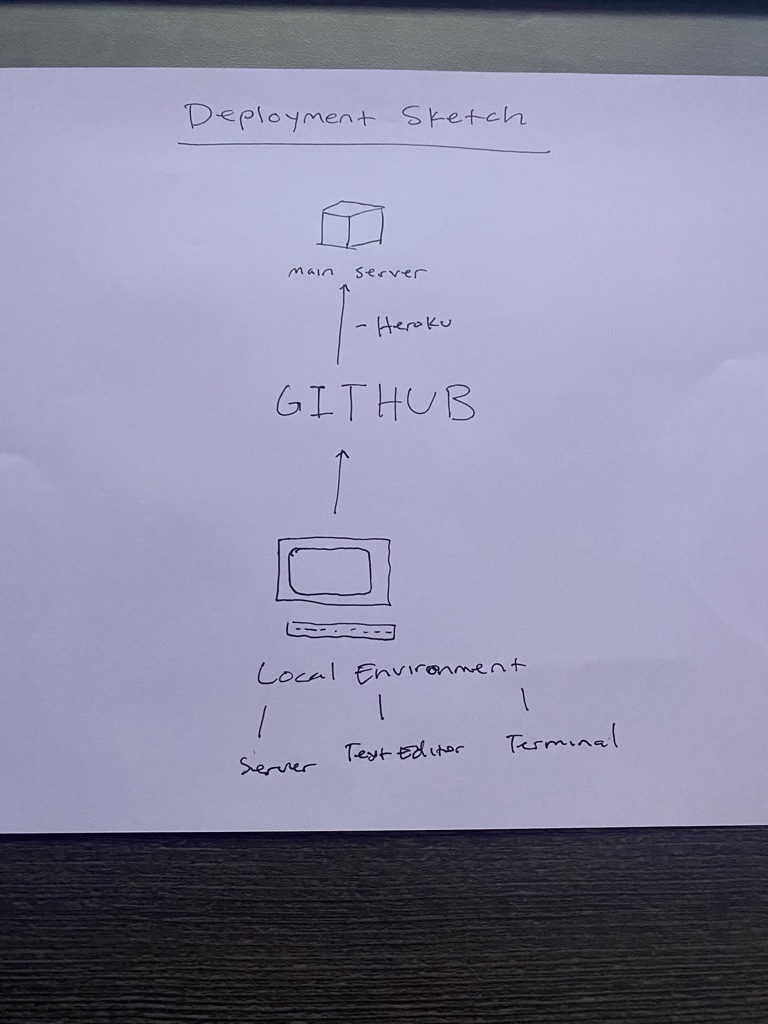 Deployment Sketch
main server
- Heroku
GITHUB
Local Environment
Server Text Editor Terminal